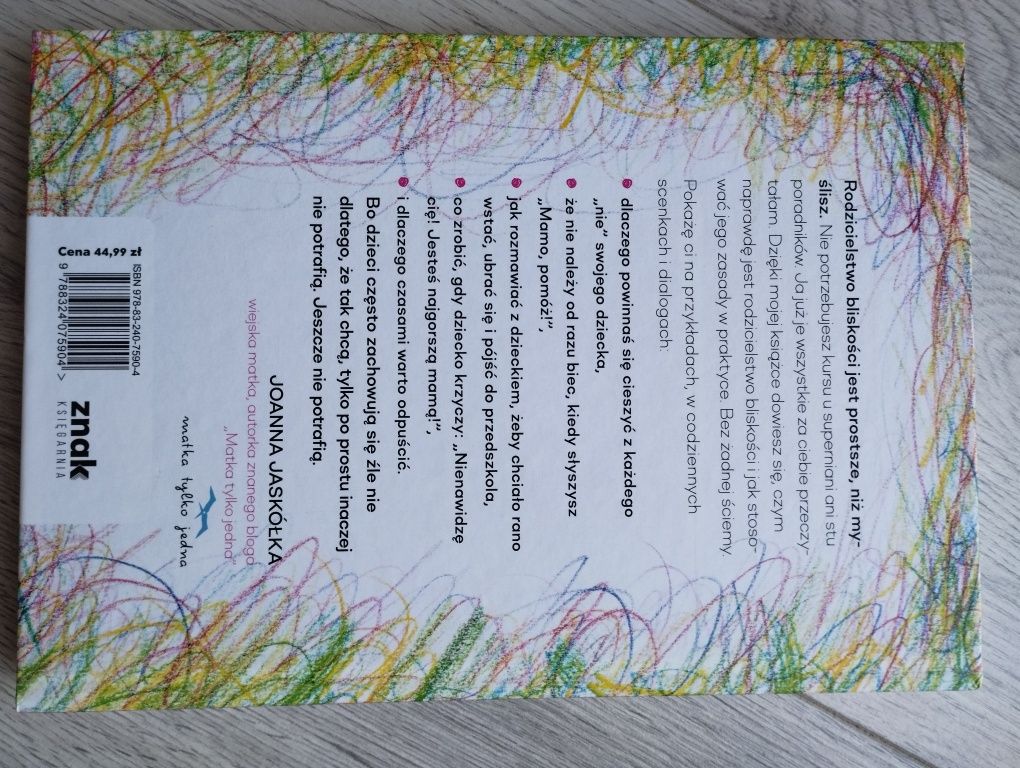 Rodzicielstwo bliskości jest prostsze, niż my-
ślisz. Nie potrzebujesz kursu u superniani ani stu
poradników. Ja już je wszystkie za ciebie przeczy-
tałam. Dzięki mojej książce dowiesz się, czym
naprawdę jest rodzicielstwo bliskości i jak stoso-
wać jego zasady w praktyce. Bez żadnej ściemy.
Pokażę ci na przykładach, w codziennych
scenkach i dialogach:
dlaczego powinnaś się cieszyć z każdego
„nie” swojego dziecka,
że nie należy od razu biec, kiedy słyszysz
„Mamo, pomóż!”,
jak rozmawiać z dzieckiem, żeby chciało rano
wstać, ubrać się i pójść do przedszkola,
co zrobić, gdy dziecko krzyczy: „Nienawidzę
cię! Jesteś najgorszą mamą!”,
i dlaczego czasami warto odpuścić.
Bo dzieci często zachowują się źle nie
dlatego, że tak chcą, tylko po prostu inaczej
nie potrafią. Jeszcze nie potrafią.
JOANNA JASKÓŁKA
wiejska matka, autorka znanego bloga
„Matka tylko jedna”
matka tylko jedna
Cena 44,99 zł
ISBN 978-83-240-7590-4
9 788324 075904 >
znak
KSIĘGARNIA